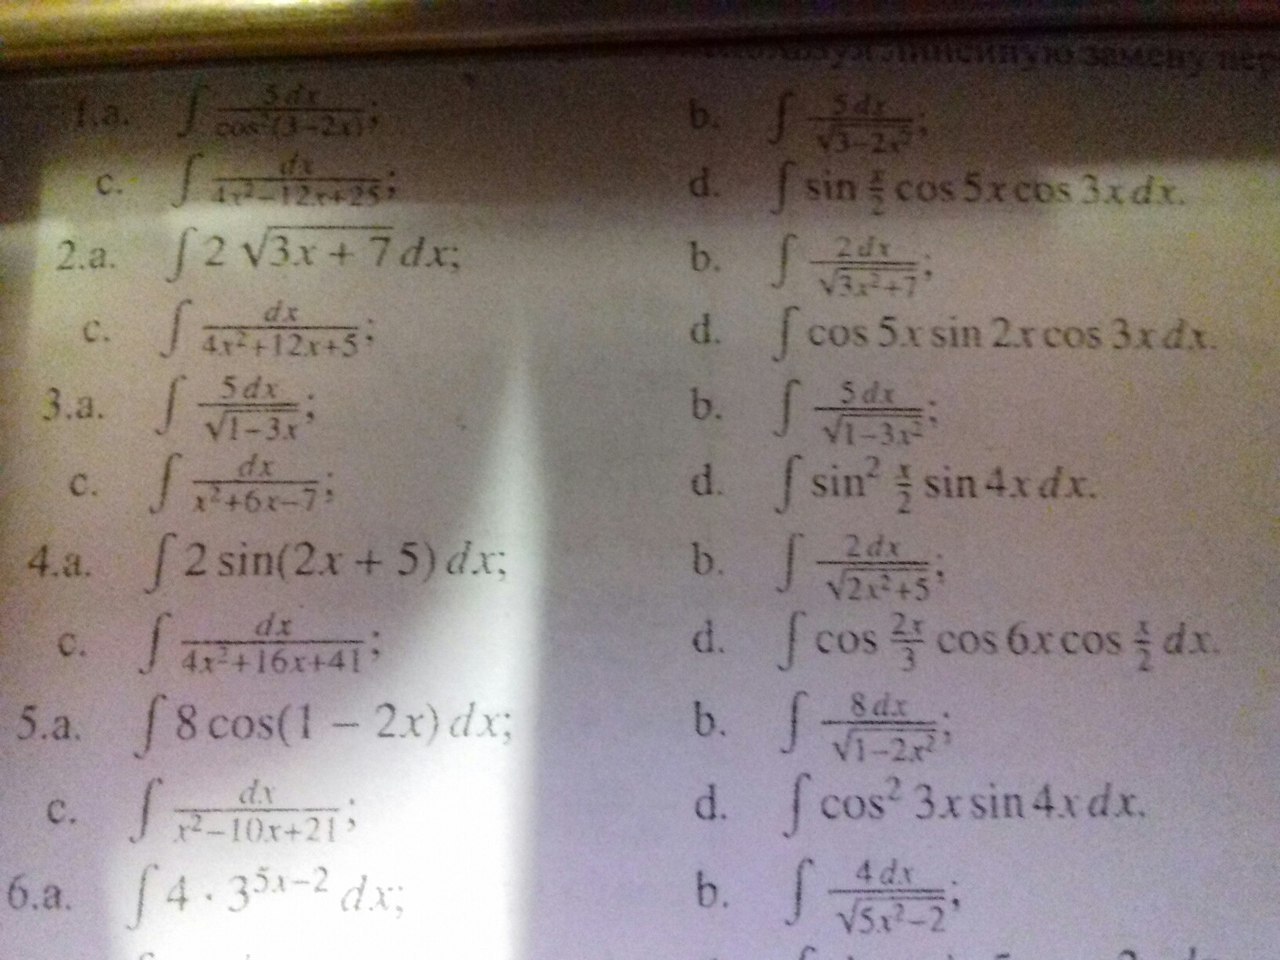 линейную замену
1.a. ∫ 5dx/cos²(3−2x); b. ∫ 5dx/√(3−2x²);
c. ∫ dx/(4x²−12x+25); d. ∫ sin x/2 cos 5x cos 3x dx.
2.a. ∫ 2 √(3x + 7) dx; b. ∫ 2dx/√(3x²+7);
c. ∫ dx/(4x²+12x+5); d. ∫ cos 5x sin 2x cos 3x dx.
3.a. ∫ 5dx/√(1−3x); b. ∫ 5dx/√(1−3x²);
c. ∫ dx/(x²+6x−7); d. ∫ sin² x/2 sin 4x dx.
4.a. ∫ 2 sin(2x + 5) dx; b. ∫ 2dx/√(2x²+5);
c. ∫ dx/(4x²+16x+41); d. ∫ cos 2x/3 cos 6x cos x/2 dx.
5.a. ∫ 8 cos(1 − 2x) dx; b. ∫ 8dx/√(1−2x²);
c. ∫ dx/(x²−10x+21); d. ∫ cos² 3x sin 4x dx.
6.a. ∫ 4 · 3^(5x−2) dx; b. ∫ 4dx/√(5x²−2);